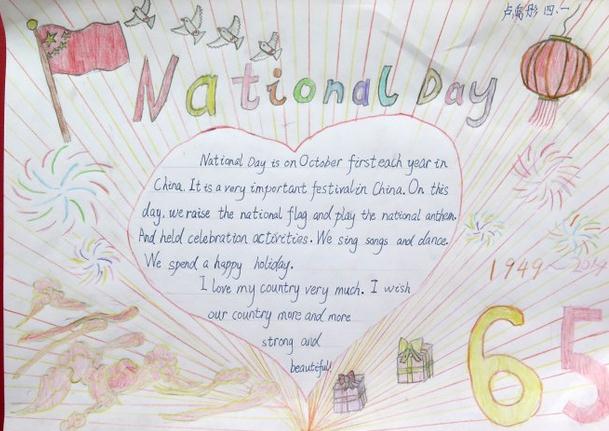 卢禹彤 四.一
National Day
National Day is on October first each year in
China. It is a very important festival in China. On this
day, we raise the national flag and play the national anthem.
And held celebration activities. We sing songs and dance.
We spend a happy holiday.
I love my country very much. I wish
our country more and more
strong and
beautiful!
1949~2014
65